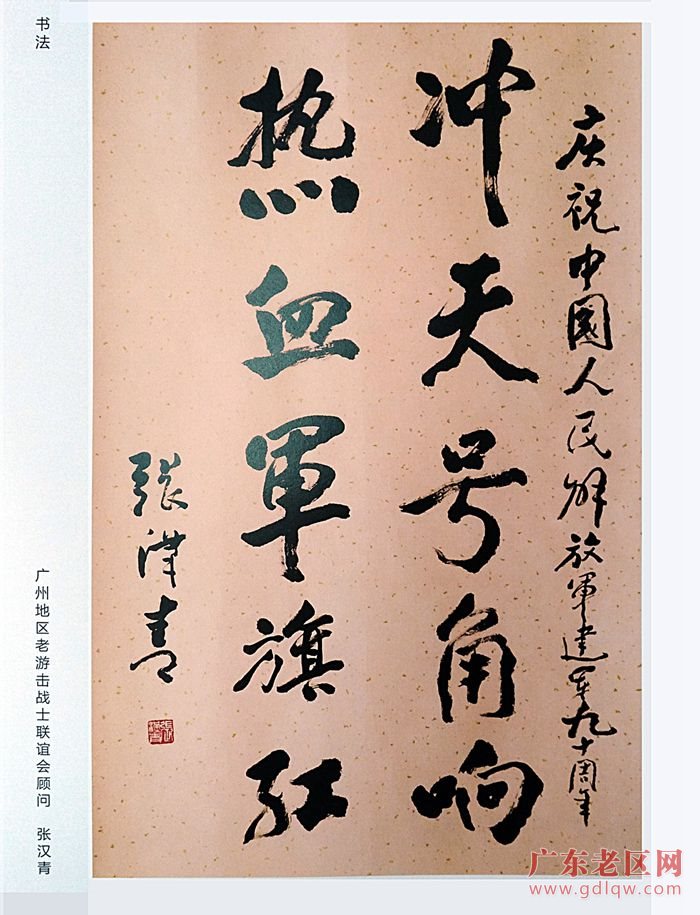 书法
庆祝中國人民解放軍建军九十周年
冲天号角响
热血軍旗红
張漢青
广州地区老游击战士联谊会顾问 张汉青
广东老区网
www.gdlqw.com